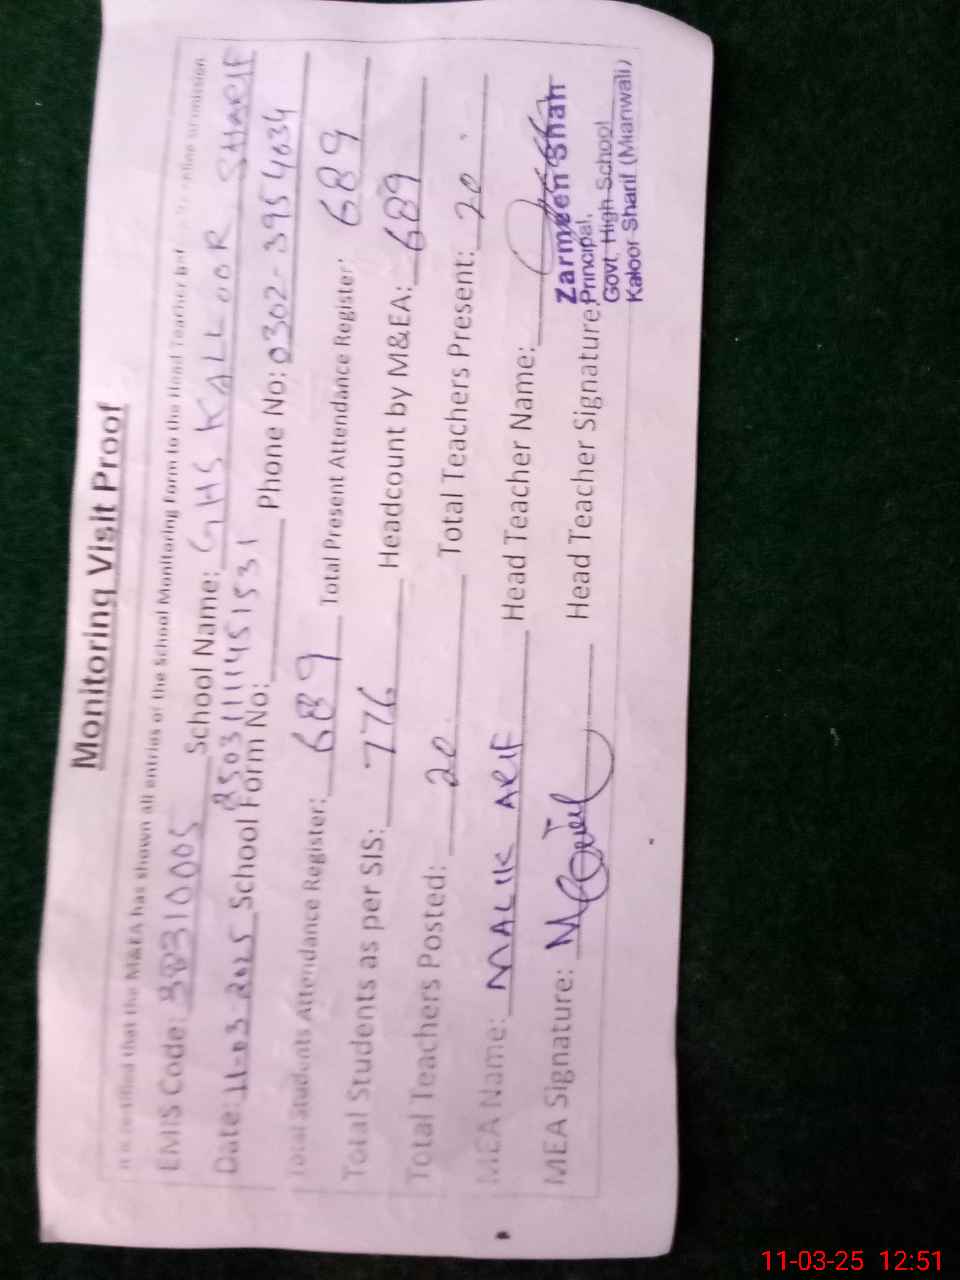 Monitoring Visit Proof
It is certified that the M&EA has shown all entries of the School Monitoring Form to the Head Teacher
EMIS Code: 38310005 School Name: GHS KALLOOR SHARIF
Date: 11-03-2025 School Form No: 250311114515531 Phone No: 0302-3954034
Total Students Attendance Register: 689 Total Present Attendance Register: 689
Total Students as per SIS: 776 Headcount by M&EA: 689
Total Teachers Posted: 20 Total Teachers Present: 20
MEA Name: MALIK ARIF Head Teacher Name:
MEA Signature: Head Teacher Signature:
Zarmeen Shah
Principal,
Govt. High School
Kaloor Sharif (Mianwali)
11-03-25 12:51